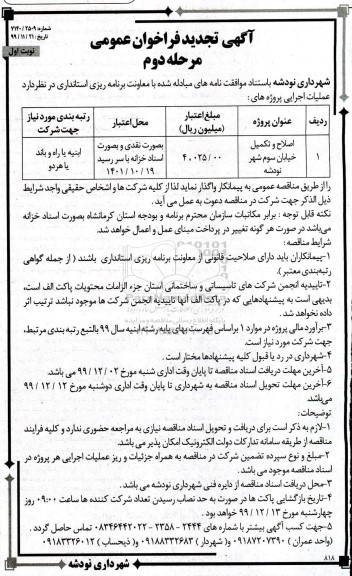 شماره: ۷۱۴۰/۲۵۰۹
تاریخ: ۹۹/۱۱/۲۱
نوبت اول
آگهی تجدید فراخوان عمومی
مرحله دوم
شهرداری نودشه باستناد موافقت نامه های مبادله شده با معاونت برنامه ریزی استانداری در نظر دارد
عملیات اجرایی پروژه های :
ردیف عنوان پروژه مبلغ اعتبار (میلیون ریال) محل اعتبار رتبه بندی مورد نیاز جهت شرکت
۱ اصلاح و تکمیل خیابان سوم شهر نودشه ۴۰۲۵/۰۰ بصورت نقدی و بصورت اسناد خزانه با سر رسید ۱۴۰۱/۱۰/۱۹ ابنیه یا راه و باند یا هر دو
را از طریق مناقصه عمومی به پیمانکار واگذار نماید لذا از کلیه شرکت ها و اشخاص حقیقی واجد شرایط
ذیل الذکر جهت شرکت در مناقصه دعوت به عمل می آید .
نکته قابل توجه : برابر مکاتبات سازمان محترم برنامه و بودجه استان کرمانشاه بصورت اسناد خزانه
می‌باشد در صورت هر گونه تغییر در پرداخت مبنای عمل و اعمال خواهد شد.
شرایط مناقصه:
۱-پیمانکاران باید دارای صلاحیت قانونی از معاونت برنامه ریزی استانداری باشند ( از جمله گواهی
رتبه‌بندی معتبر).
۲-تاییدیه انجمن شرکت های تاسیساتی و ساختمانی استان جزء الزامات محتویات پاکت الف است،
بدیهی است به پیشنهادهایی که در پاکت الف آنها تاییدیه انجمن شرکت ها موجود نباشد ترتیب اثر
داده نخواهد شد .
۳-برآورد مالی پروژه در موارد ۱ براساس فهرست بهای پایه رشته ابنیه سال ۹۹ بالتبع رتبه بندی مرتبط،
جهت شرکت مورد نیاز است.
۴-شهرداری در رد یا قبول کلیه پیشنهادها مختار است .
۵-آخرین مهلت دریافت اسناد مناقصه تا پایان وقت اداری شنبه مورخ ۹۹/۱۲/۰۲ می باشد.
۶-آخرین مهلت تحویل اسناد مناقصه به شهرداری تا پایان وقت اداری دوشنبه مورخ ۹۹/۱۲/۱۲
می‌باشد.
توضیحات:
۱-لازم به ذکر است برای دریافت و تحویل اسناد مناقصه نیازی به مراجعه حضوری ندارد و کلیه فرایند
مناقصه از طریقه سامانه تدارکات دولت الکترونیک امکان پذیر می باشد.
۲-مبلغ و نوع سپرده تضمین شرکت در مناقصه به همراه جزئیات و ریز عملیات اجرایی هر پروژه در
اسناد مناقصه موجود می باشد .
۳-محل دریافت اسناد مناقصه از دایره فنی شهرداری نودشه می باشد .
۴-تاریخ بازگشایی پاکت ها در صورت به حد نصاب رسیدن تعداد شرکت کننده ها ساعت ۰۹:۰۰ روز
چهارشنبه مورخ ۹۹/۱۲/۱۳ خواهد بود .
۵-جهت کسب آگهی بیشتر با شماره های ۲۴۴۴ - ۲۳۵۸ - ۰۸۳۴۶۴۴۲۰۲۲ تماس حاصل گردد .
(واحد عمران) ۰۹۱۸۷۲۰۷۳۹۰ و( شهردار) ۰۹۱۸۸۳۳۲۶۸۳ و( ذیحساب) ۰۹۱۸۳۳۲۶۰۱۲
شهرداری نودشه
۸۱۸